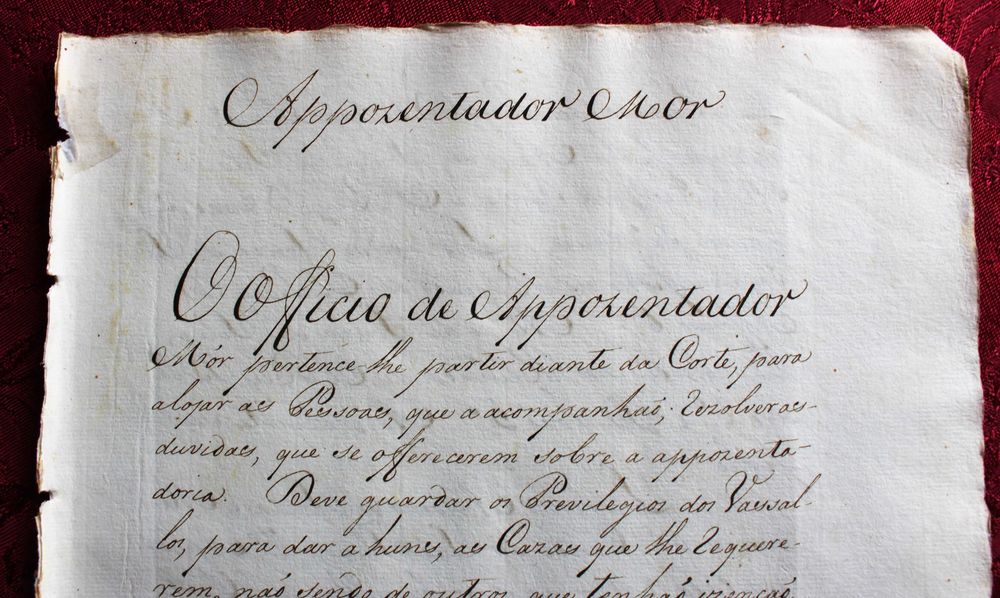 Appozentador Mor
O Officio de Appozentador
Mór pertence-lhe partir diante da Corte, para
alojar as Pessoas, que a acompanhaõ; rezolver as
duvidas, que se offerecerem sobre a appozenta-
doria. Deve guardar os Previlegios dos Vassal-
los, para dar a huns, as Cazas que lhe requere-
rem, naõ sendo de outros, que tenhaõ izençaõ